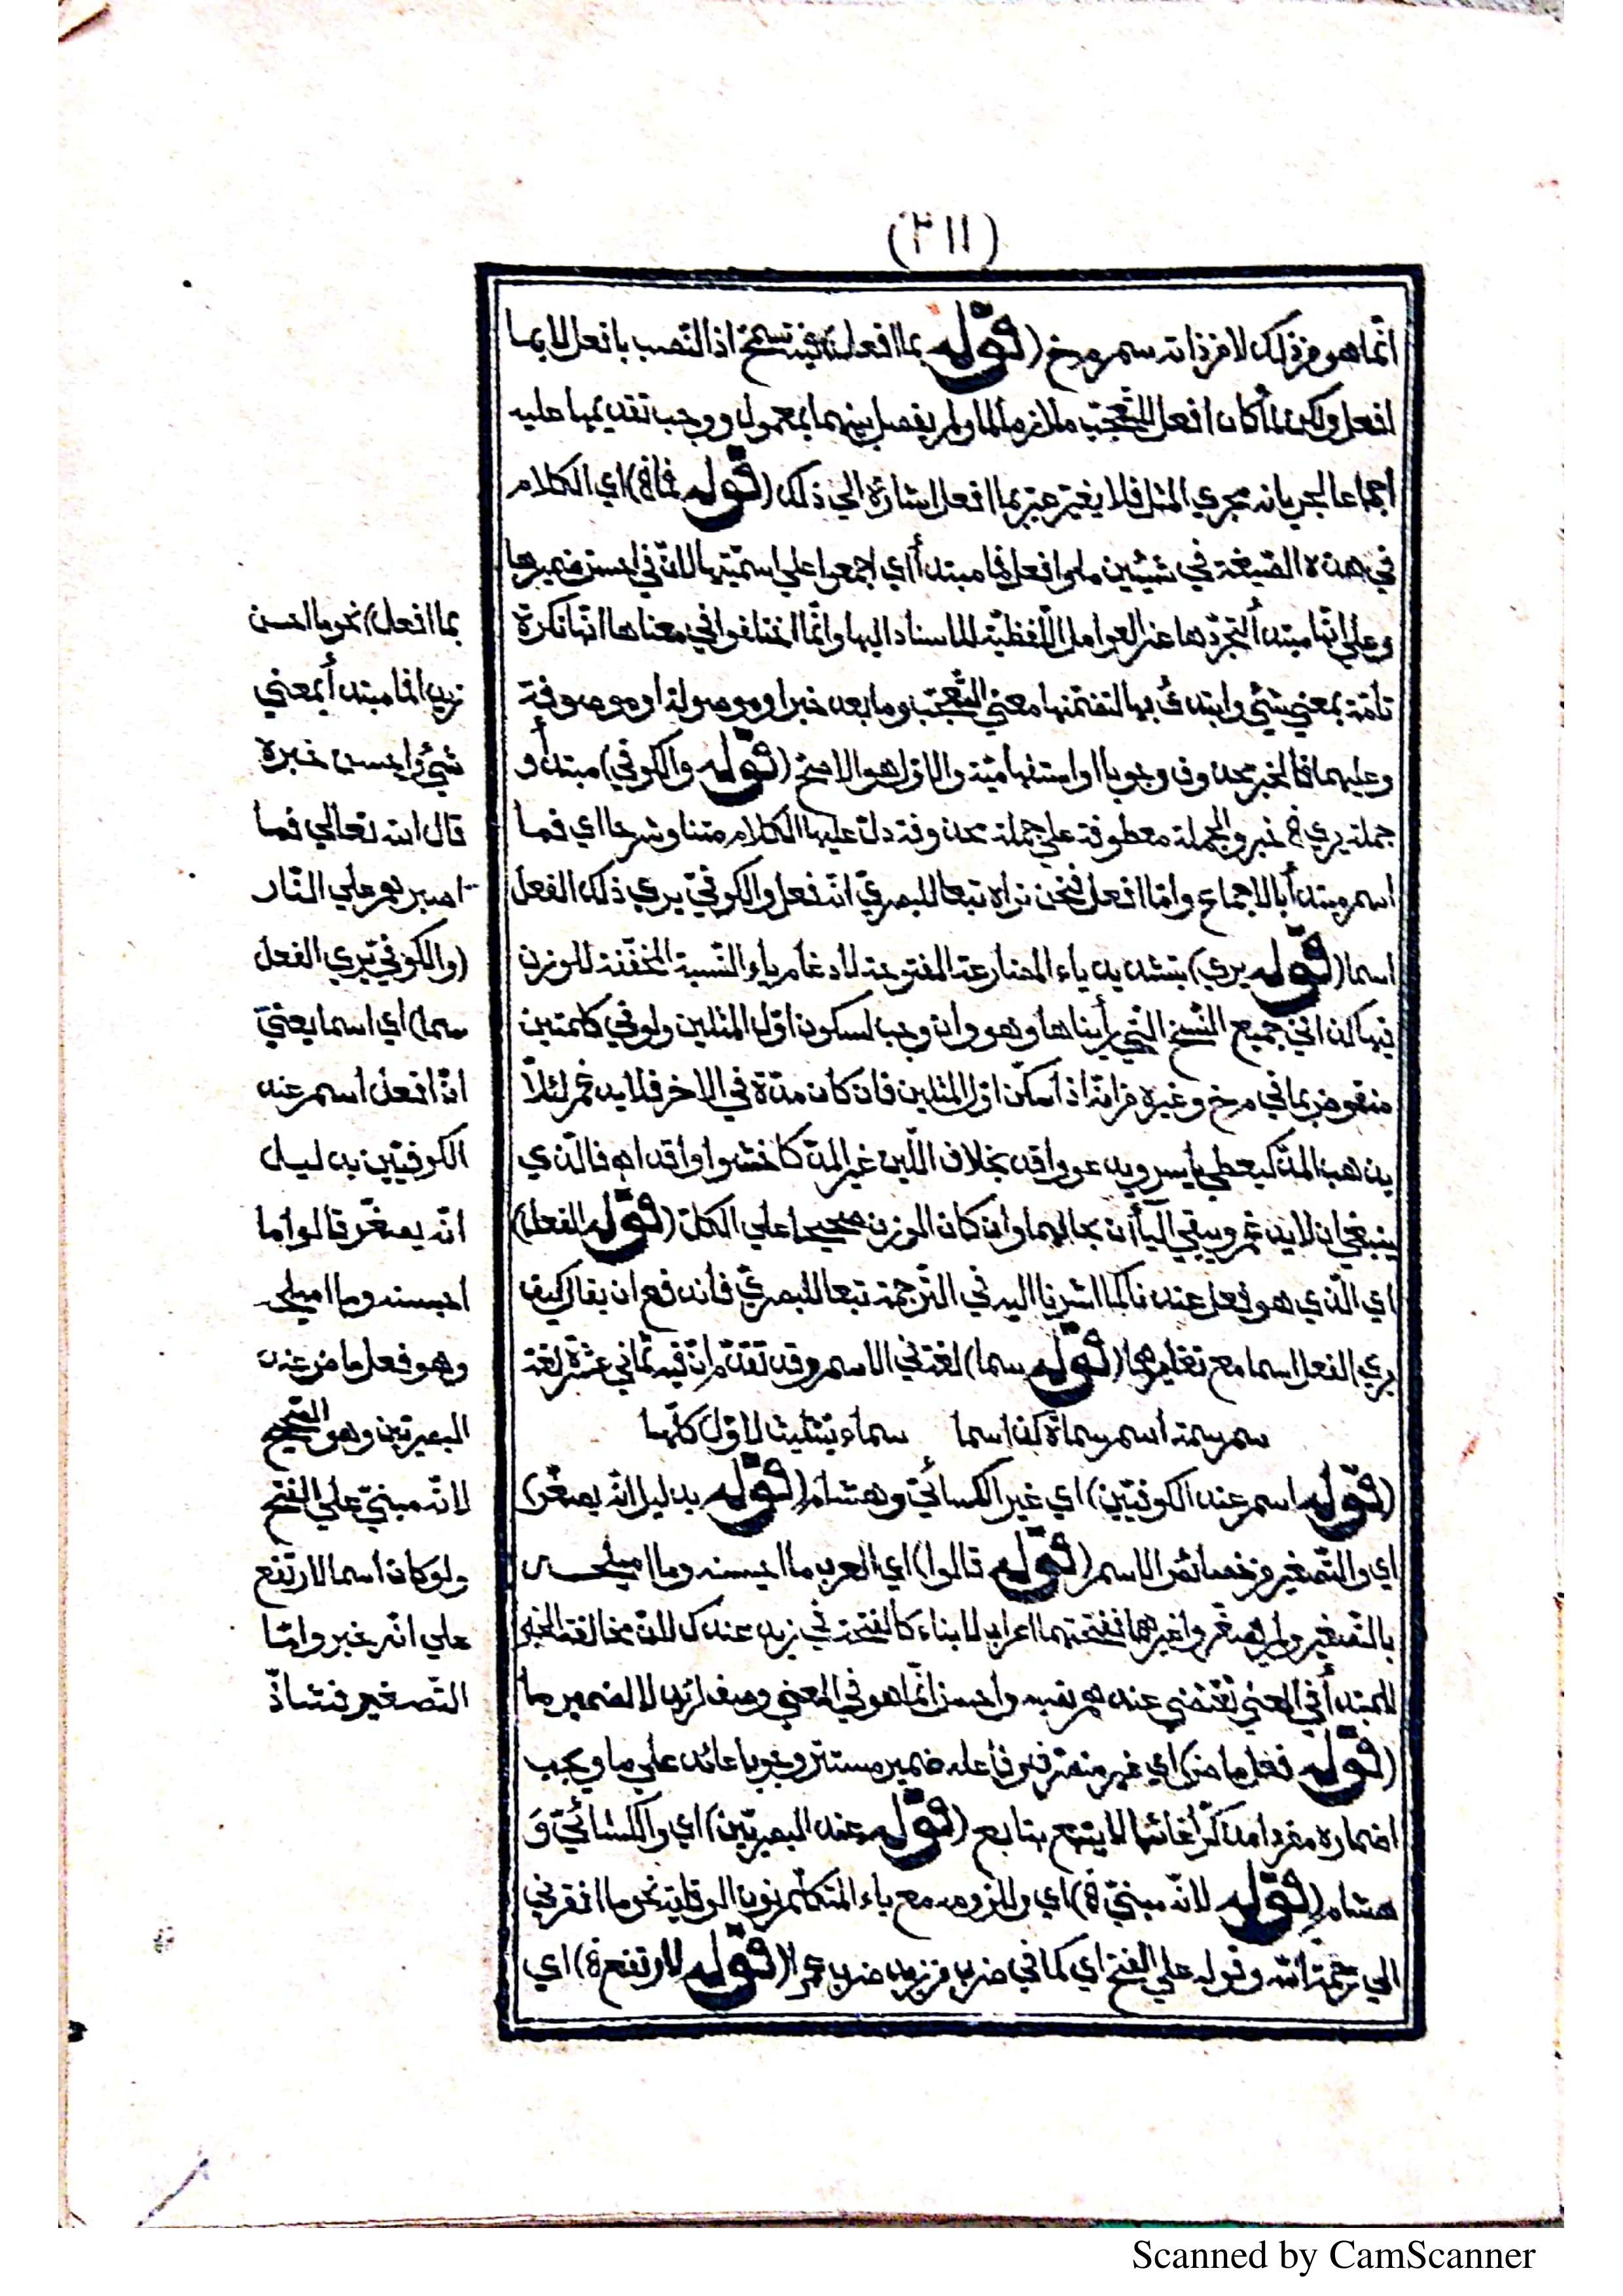 (٢١١)
انّما هو من ذلك لا من ذاته سم مرخ (قوله بما افعل) فيه تسمّح اذ النّصب بافعل لا بما
افعل ولكن لمّا كان افعل التّعجّب ملازما لما ولم يفصل بينهما بمعمول ووجب تقديمها عليه
اجماعا لجريانه مجري المثل فلا يغيّر عبّر بما افعل اشارة الي ذلك (قوله فما) اي الكلام
في هذه الصّيغة في شيئين ما وافعل فما مبتدأ اي اجمعوا علي اسميّتها لانّ في احسن ضميرها
وعلي انّها مبتدأ لتجرّدها عن العوامل اللّفظيّة للاسناد اليها وانّما اختلفوا في معناها انّها نكرة
تامّة بمعني شيئ وابتدئ بها لتضمّنها معني التّعجّب وما بعد خبر او موصولة او موصوفة
وعليهما فالخبر محذوف وجوبا او استفهاميّة والاوّل هو الاصحّ (قوله والكوفي) مبتدأ و
جملة يري خبر والجملة معطوفة علي جملة محذوفة دلّ عليها الكلام متنا وشرحا اي فما
اسم مبتدأ بالاجماع وامّا افعل فنحن نراه تبعا للبصريّ انّه فعل والكوفيّ يري ذلك الفعل
اسما (قوله يري) بتشديد ياء المضارعة المفتوحة لادغام ياء النّسبة المخفّفة للوزن
فيها كذا في جميع النّسخ الّتي رأيناها وهو وان وجب لسكون اوّل المثلين ولو في كلمتين
منقوض بما في مرخ وغيره من انّه اذا سكن اوّل المثلين فان كان مدّة في الاخر فلا يدغم لئلّا
يذهب المدّ كيعطي ياسر ويدعو واقد بخلاف اللّين غير المدّ كاخشوا واقدا اه فالّذي
ينبغي ان لا يدغم ويبقي اليأان بحالهما وان كان الوزن صحيحا علي الكلّ (قوله الفعل)
اي الّذي هو فعل عندنا كما اشرنا اليه في التّرجمة تبعا للبصريّ فاندفع ان يقال كيف
يري الفعل اسما مع تغايرهما (قوله سما) لغة في الاسم وقد تقدّم انّ فيه ثماني عشرة لغة
سم سمة اسم سماة كذا سما سماء بتثليث لاوّل كلّها
(قوله اسم عند الكوفيّين) اي غير الكسائيّ وهشام (قوله بدليل انّه يصغّر)
اي والتّصغير من خصائص الاسم (قوله قالوا) اي العرب ما احيسنه وما اميلحه
بالتّصغير ولم يصغّروا غيرهما ففتحتهما اعراب لا بناء كالفتحة في زيد عندك لانّ مخالفة الخبر
للمبتدأ في المعني تقتضي عندهم نصبه واحسن انّما هو في المعني وصف لزيد لا لضمير ما
(قوله فعل ماض) اي غير متصرّف وفاعله ضمير مستتر وجوبا عائد علي ما ويجب
اضماره مفردا مذكّرا غائبا لا يتبع بتابع (قوله عند البصريّين) اي والكسائيّ وَ
هشام (قوله لانّه مبنيّ) اي وللزومه مع ياء المتكلّم نون الوقاية نحو ما افقرني
الي رحمة الله وقوله علي الفتح اي كما في ضرب من زيد ضرب عمرا (قوله لارتفع) اي
بما افعل) نحو ما احسن
زيدا فما مبتدأ بمعني
شيئ واحسن خبره
قال الله تعالي فما
اصبرهم علي النّار
(والكوفيّ يري الفعل
سما) اي اسما يعني
انّ افعل اسم عند
الكوفيّين بدليل
انّه يصغّر قالوا ما
احيسنه وما اميلحه
وهو فعل ماض عند
البصريّين وهو الصّحيح
لانّه مبنيّ علي الفتح
ولو كان اسما لارتفع
علي انّه خبر وامّا
التّصغير فشاذّ
Scanned by CamScanner